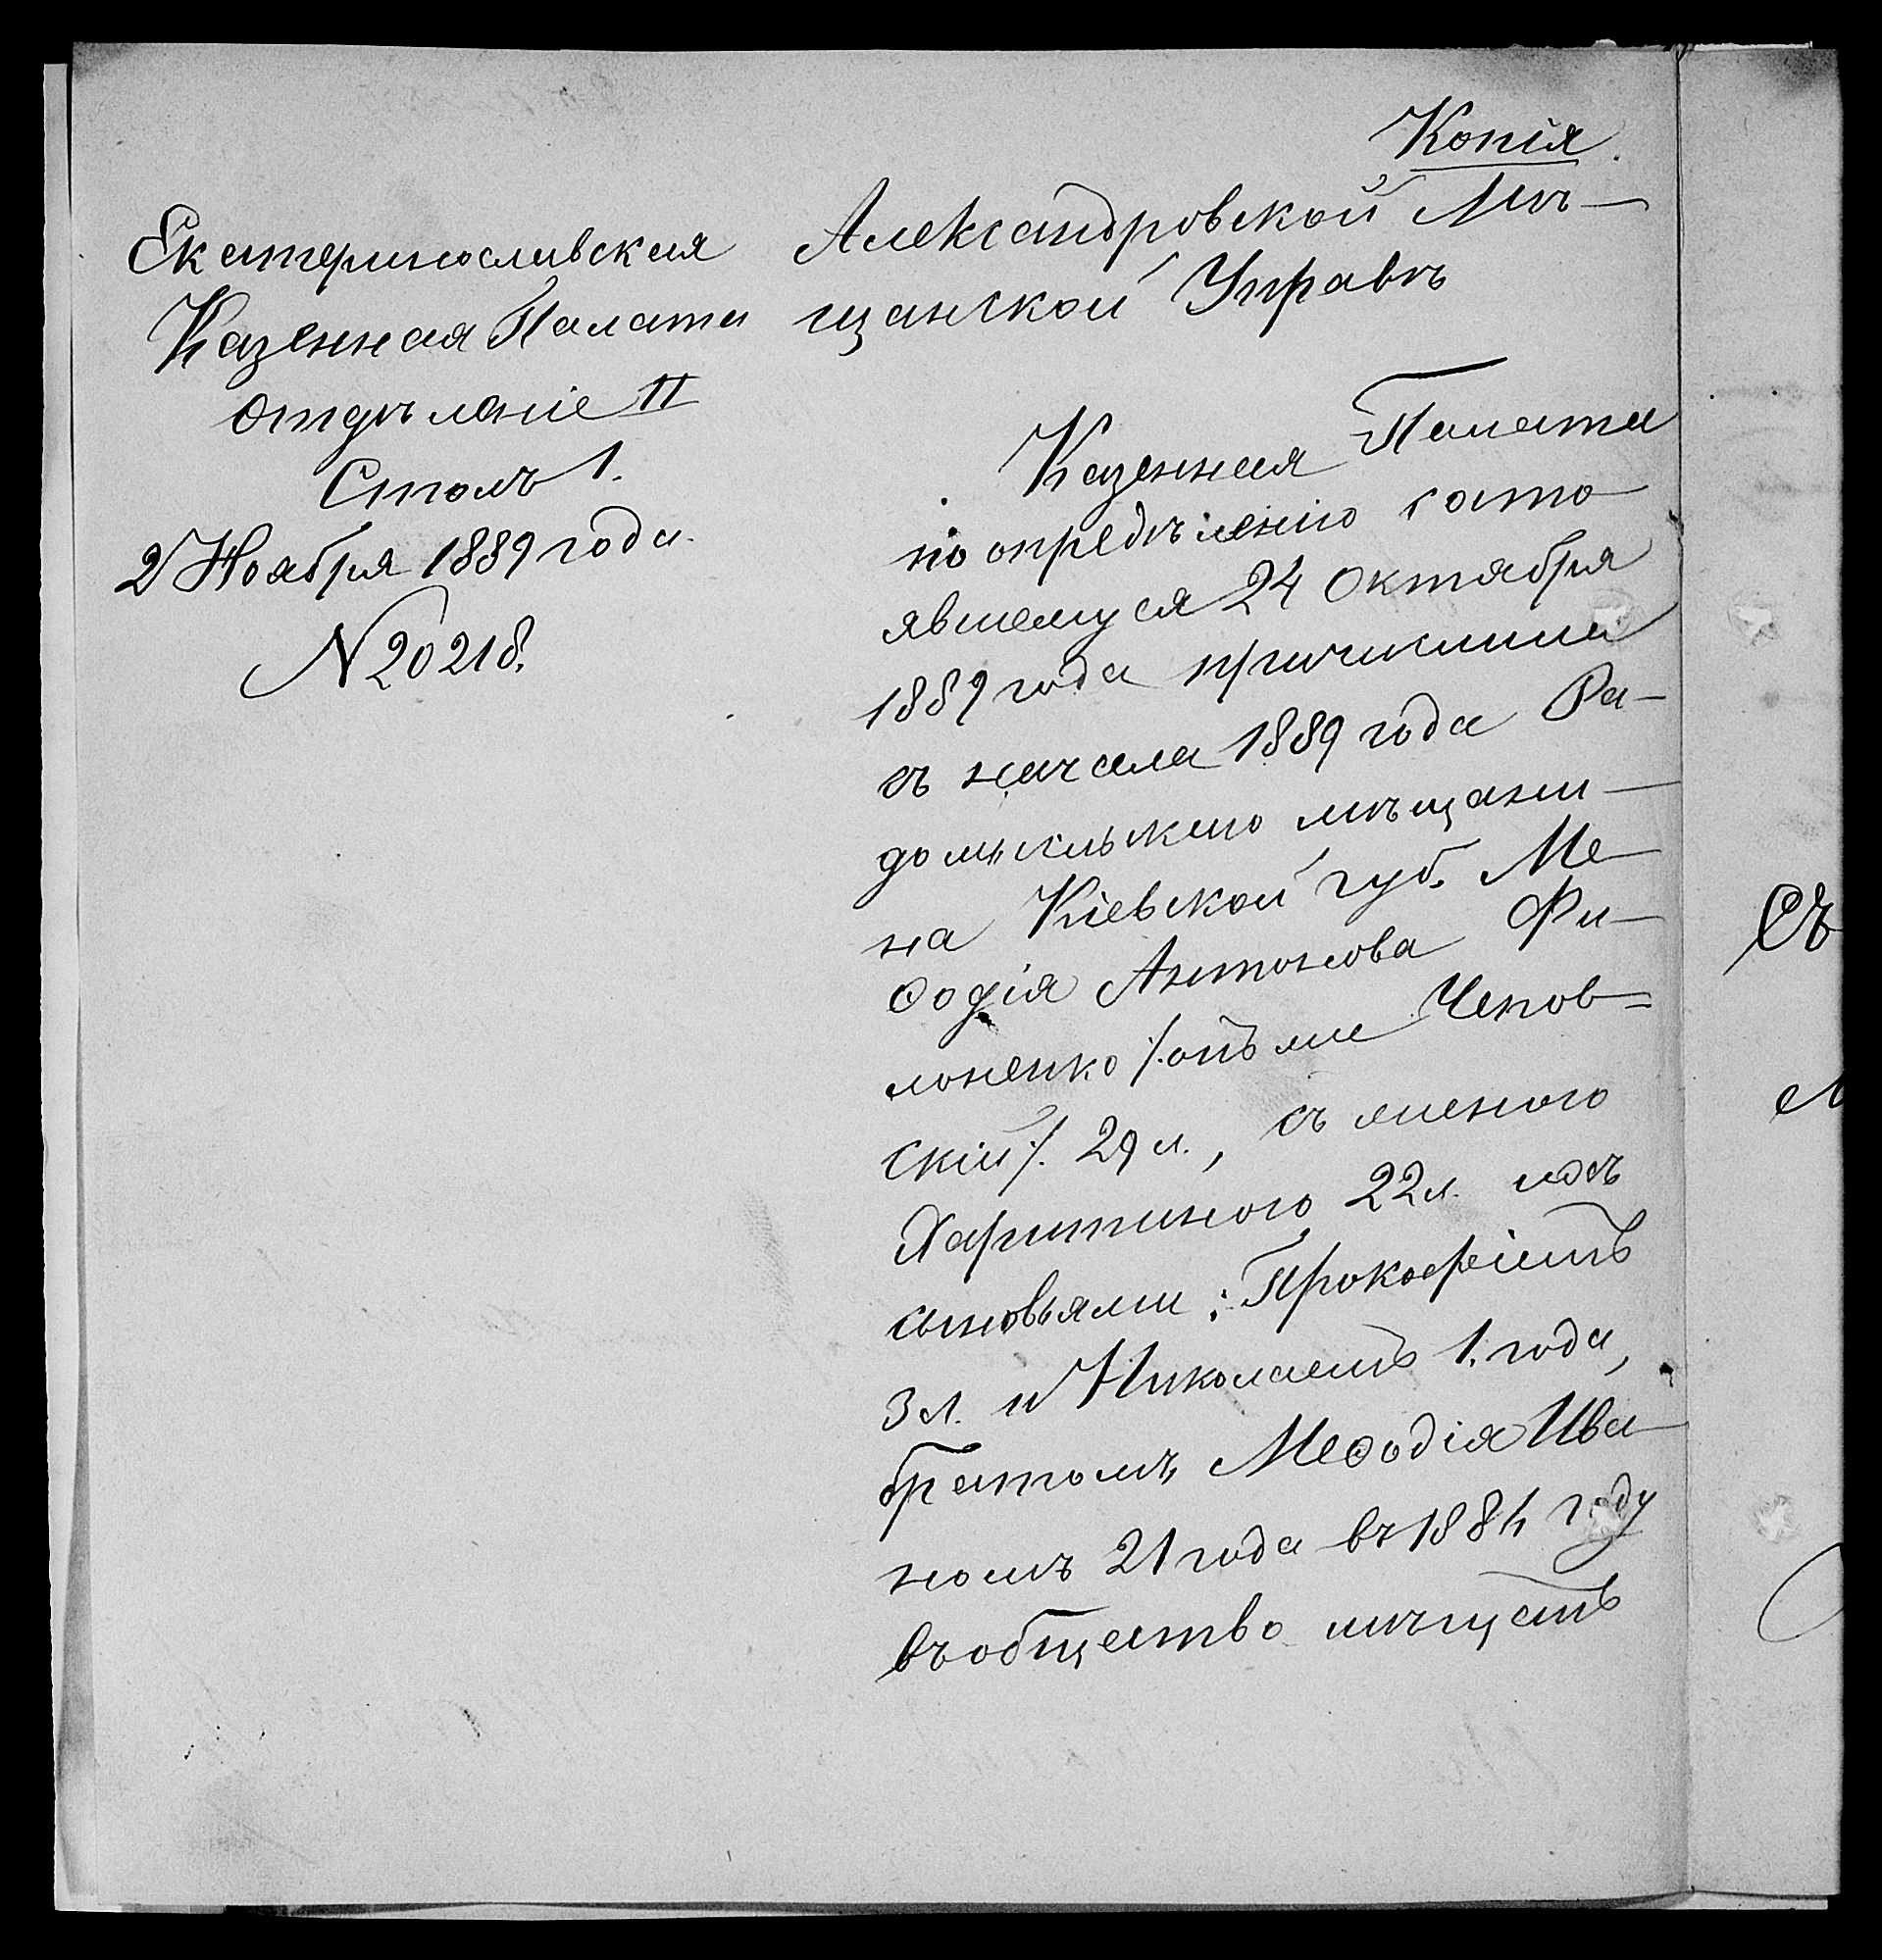 Копія.
Екатеринославская
Казенная Палата
Отдѣленіе II
Столъ 1.
2 Ноября 1889 года.
N 20218.
Александровской Мѣ-
щанской Управѣ
Казенная Палата
по опредѣленію состо-
явшемуся 24 Октября
1889 года причислила
съ начала 1889 года Ра-
домысльскаго мѣщани-
на Кіевской губ. Ме-
ѳодія Антонова Фи-
лоненко /: онъ же Чепов-
скій :/ 29 л., съ женою
Харитиною 22 л. и съ
сыновьями: Прокофіемъ
3 л. и Николаемъ 1 года,
братомъ Меѳодія Ива-
номъ 21 года въ 1884 году
въ общество мѣщанъ
съ